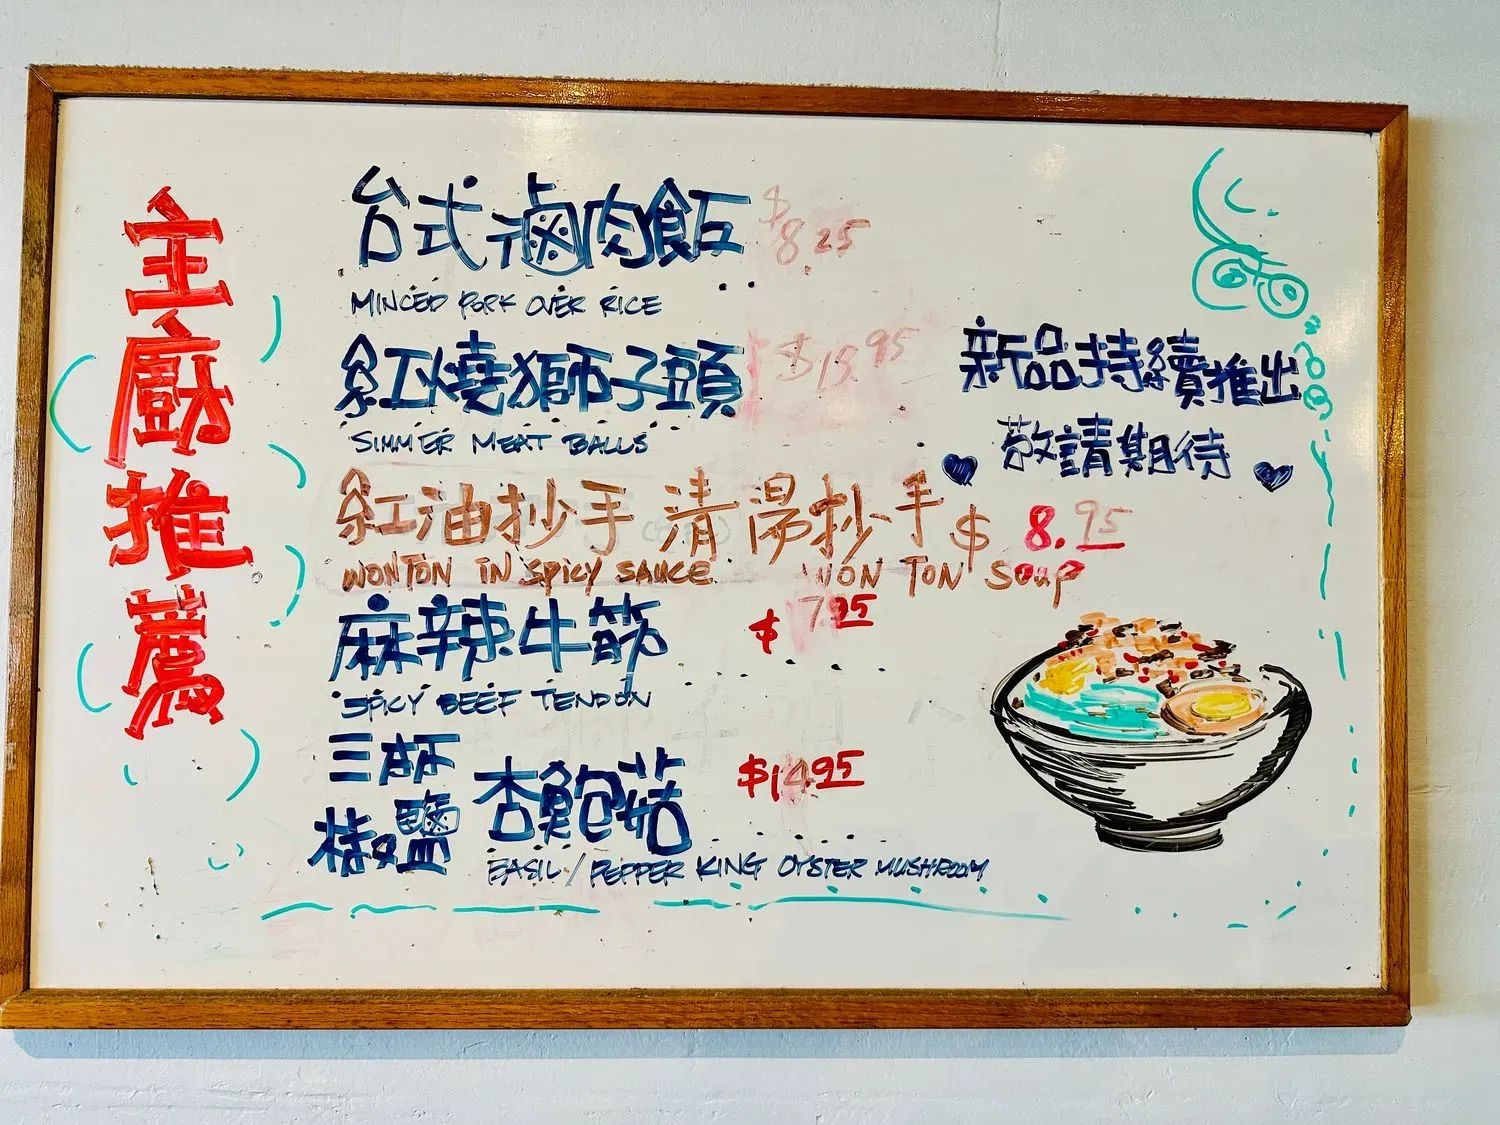 主廚推薦
台式滷肉飯 $8.25
MINCED PORK OVER RICE
紅燒獅子頭 $15.95
SIMMER MEAT BALLS
紅油抄手 清湯抄手 $8.95
WONTON IN SPICY SAUCE WON TON SOUP
麻辣牛筋 $7.95
SPICY BEEF TENDON
三杯
椒鹽 杏鮑菇 $14.95
BASIL / PEPPER KING OYSTER MUSHROOM
新品持續推出
敬請期待